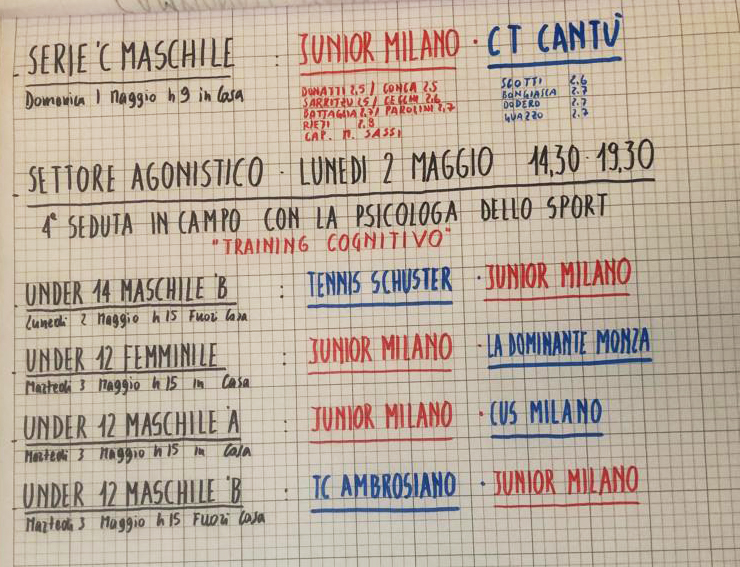 SERIE 'C MASCHILE : JUNIOR MILANO · CT CANTÙ
Domenica 1 Maggio h 9 in Casa
DONATTI 2,5 / CONCA 2.5
SARRITZU 2,5 / CECCHI 2.6
BATTAGLIA 2.7 / PAROLINI 2.7
RIEJI 2.8
CAP. M. SASSI
SCOTTI 2.6
BONGIASCA 2.7
DODERO 2.7
GUAZZO 2.7
SETTORE AGONISTICO · LUNEDI 2 MAGGIO 14,30 · 19,30
4ª SEDUTA IN CAMPO CON LA PSICOLOGA DELLO SPORT
"TRAINING COGNITIVO"
UNDER 14 MASCHILE 'B : TENNIS SCHUSTER · JUNIOR MILANO
Lunedi 2 Maggio h 15 Fuori Casa
UNDER 12 FEMMINILE : JUNIOR MILANO · LA DOMINANTE MONZA
Martedi 3 Maggio h 15 in Casa
UNDER 12 MASCHILE 'A : JUNIOR MILANO · CUS MILANO
Martedi 3 Maggio h 15 in Casa
UNDER 12 MASCHILE 'B : TC AMBROSIANO · JUNIOR MILANO
Martedi 3 Maggio h 15 Fuori Casa